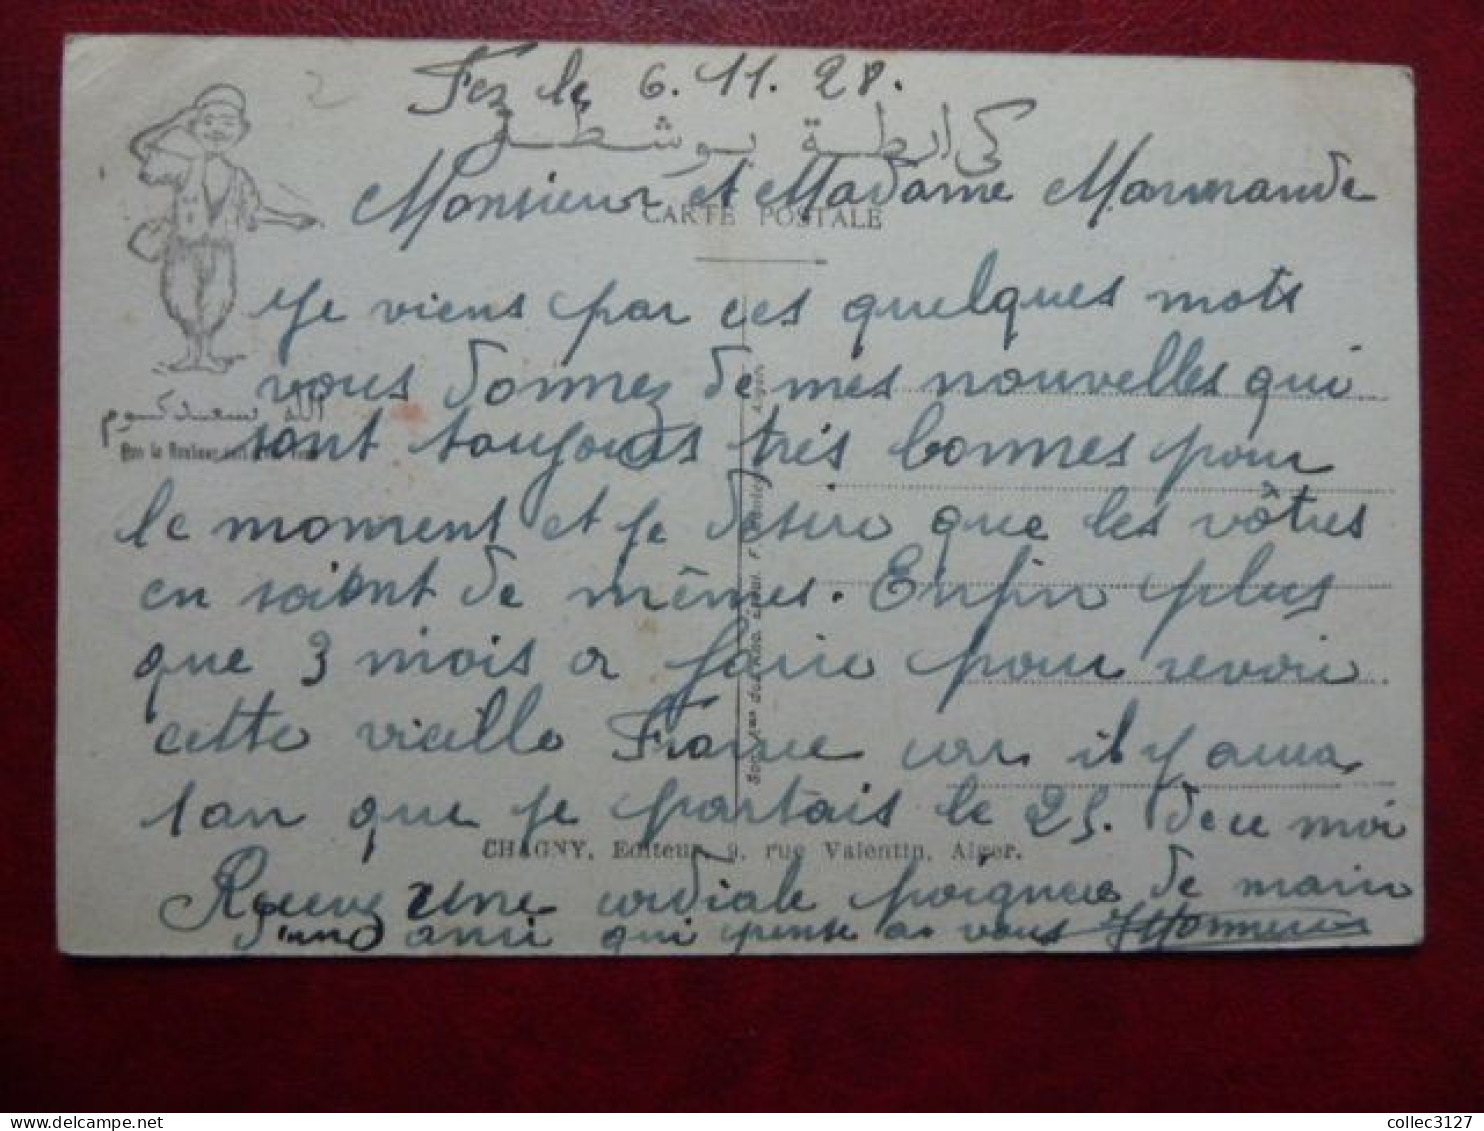 Fez le 6.11.28.
كرارطة بوشطة
Monsieur et Madame Marmande
CARTE POSTALE
Je viens par ces quelques mots
vous donnez de mes nouvelles qui
sont toujours très bonnes pour
le moment et je désire que les vôtres
en soient de mêmes. Enfin plus
que 3 mois a faire pour revoir
cette vieille France car il y aura
1 an que je partais le 25. de ce moi
CHAGNY, Editeur, 9, rue Valentin, Alger.
Recevez une cordiale poignées de main
d'un ami qui pense a vous
الله سعدكوم
collec3127